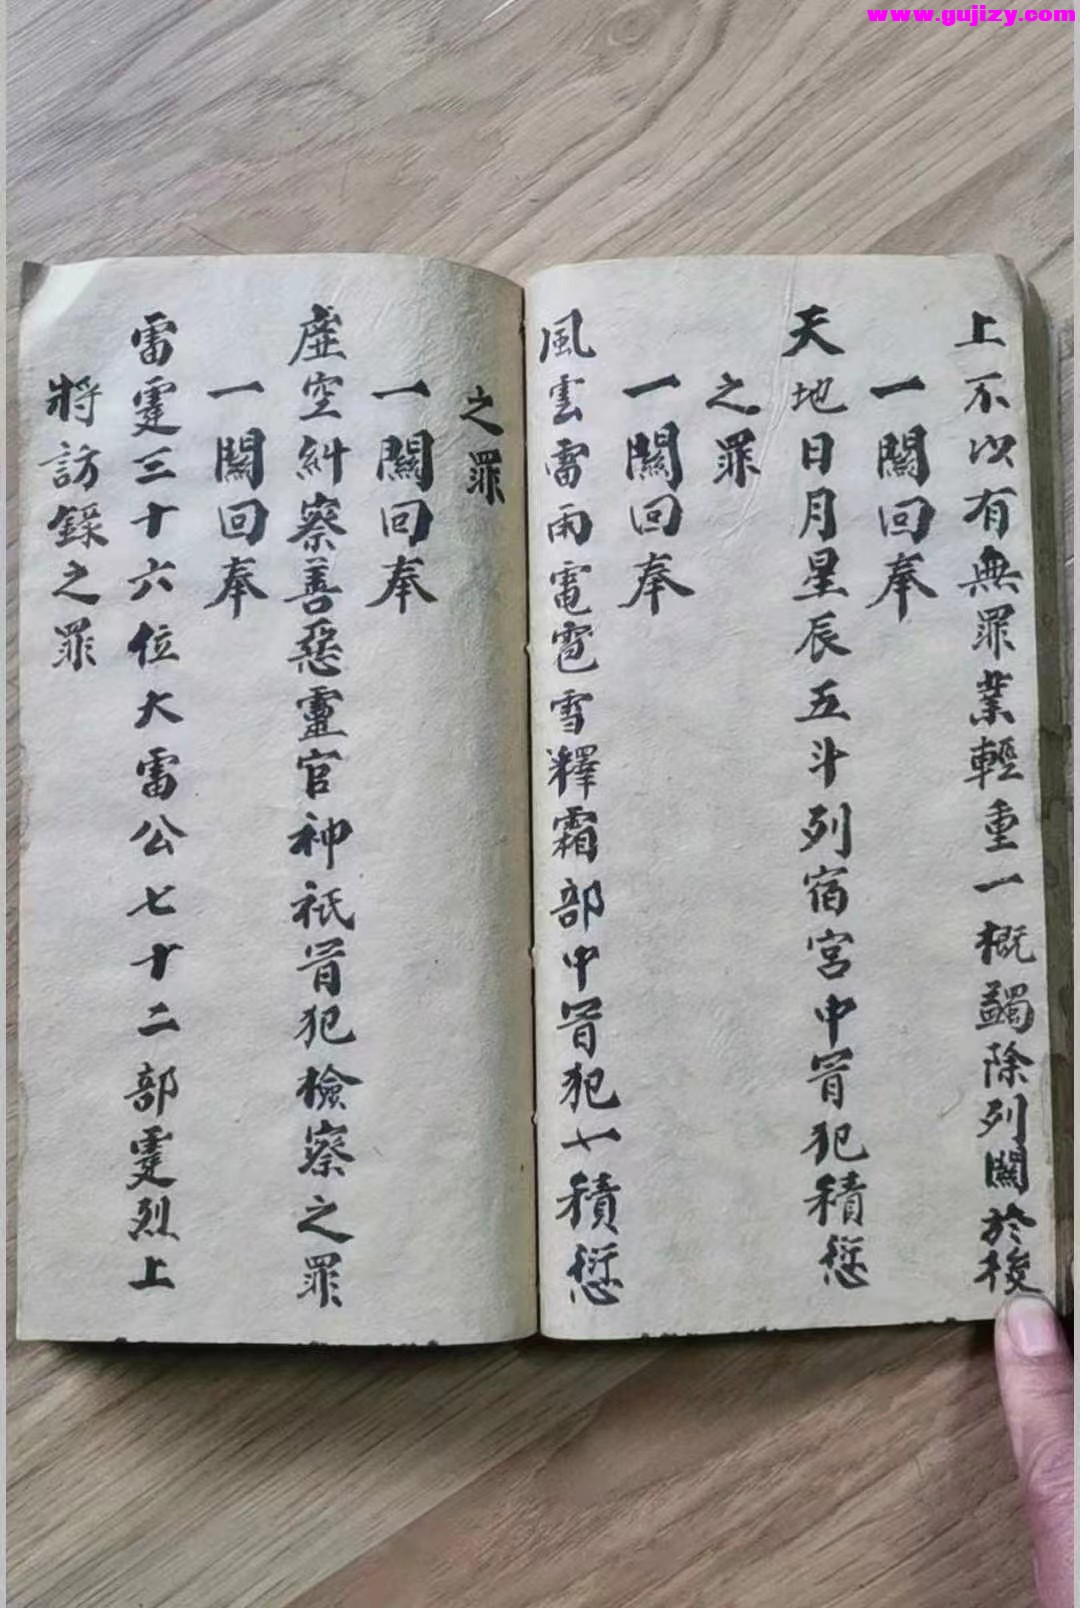 www.gujizy.com
上不以有無罪業輕重一概蠲除列關於後
一關回奉
天地日月星辰五斗列宿宮中冒犯積愆
之罪
一關回奉
風雲雷雨電雹雪釋霜部中冒犯一積愆
之罪
一關回奉
虛空糾察善惡靈官神祇冒犯檢察之罪
一關回奉
雷霆三十六位大雷公七十二部霆烈上
將訪錄之罪